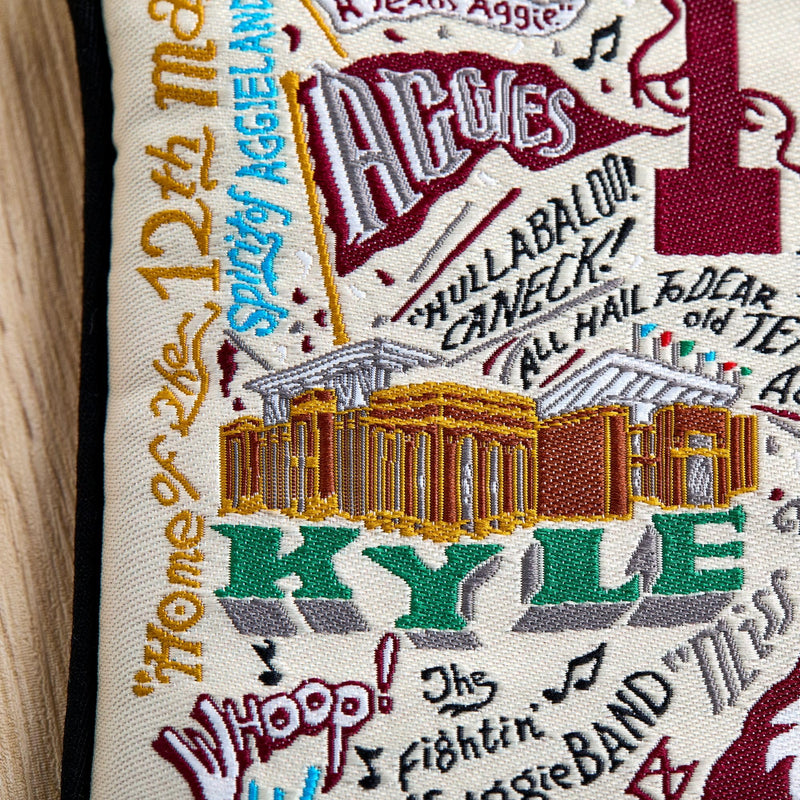 "Home of the 12th Ma
Spirit of AGGIELAND
Aggie"
AGGIES
"HULLABALOO!
CANECK!
ALL HAIL To DEAR
old TE
KYLE
"Miss
WHOOP!
The
Fightin'
AggieBAND